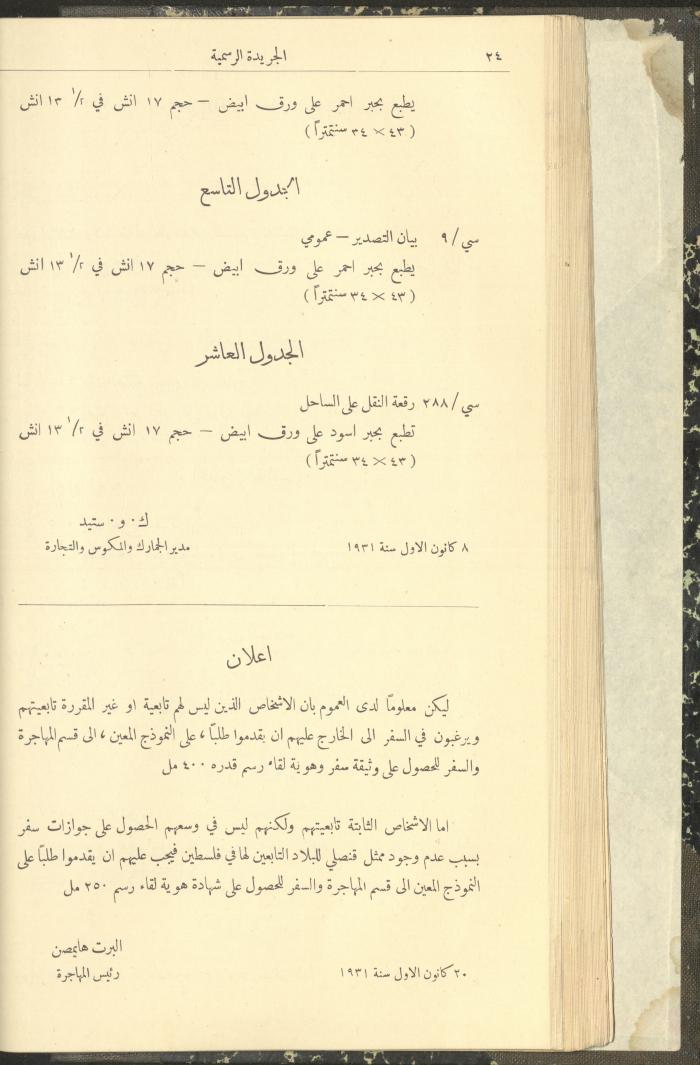 ٢٤ الجريدة الرسمية
يطبع بحبر احمر على ورق ابيض — حجم ١٧ انش في ١/٢ ١٣ انش
( ٤٣ × ٣٤ سنتمتراً )
الجدول التاسع
سي/٩ بيان التصدير — عمومي
يطبع بحبر احمر على ورق ابيض — حجم ١٧ انش في ١/٢ ١٣ انش
( ٤٣ × ٣٤ سنتمتراً )
الجدول العاشر
سي/٢٨٨ رقعة النقل على الساحل
تطبع بحبر اسود على ورق ابيض — حجم ١٧ انش في ١/٢ ١٣ انش
( ٤٣ × ٣٤ سنتمتراً )
ك٠ و٠ ستيد
٨ كانون الاول سنة ١٩٣١ مدير الجمارك والمكوس والتجارة
اعلان
ليكن معلومًا لدى العموم بان الاشخاص الذين ليس لهم تابعية او غير المقررة تابعيتهم
ويرغبون في السفر الى الخارج عليهم ان يقدموا طلبًا ، على النموذج المعين ، الى قسم المهاجرة
والسفر للحصول على وثيقة سفر وهوية لقاء رسم قدره ٤٠٠ مل
اما الاشخاص الثابتة تابعيتهم ولكنهم ليس في وسعهم الحصول على جوازات سفر
بسبب عدم وجود ممثل قنصلي للبلاد التابعين لها في فلسطين فيجب عليهم ان يقدموا طلبًا على
النموذج المعين الى قسم المهاجرة والسفر للحصول على شهادة هوية لقاء رسم ٢٥٠ مل
البرت هايمصن
٢٠ كانون الاول سنة ١٩٣١ رئيس المهاجرة